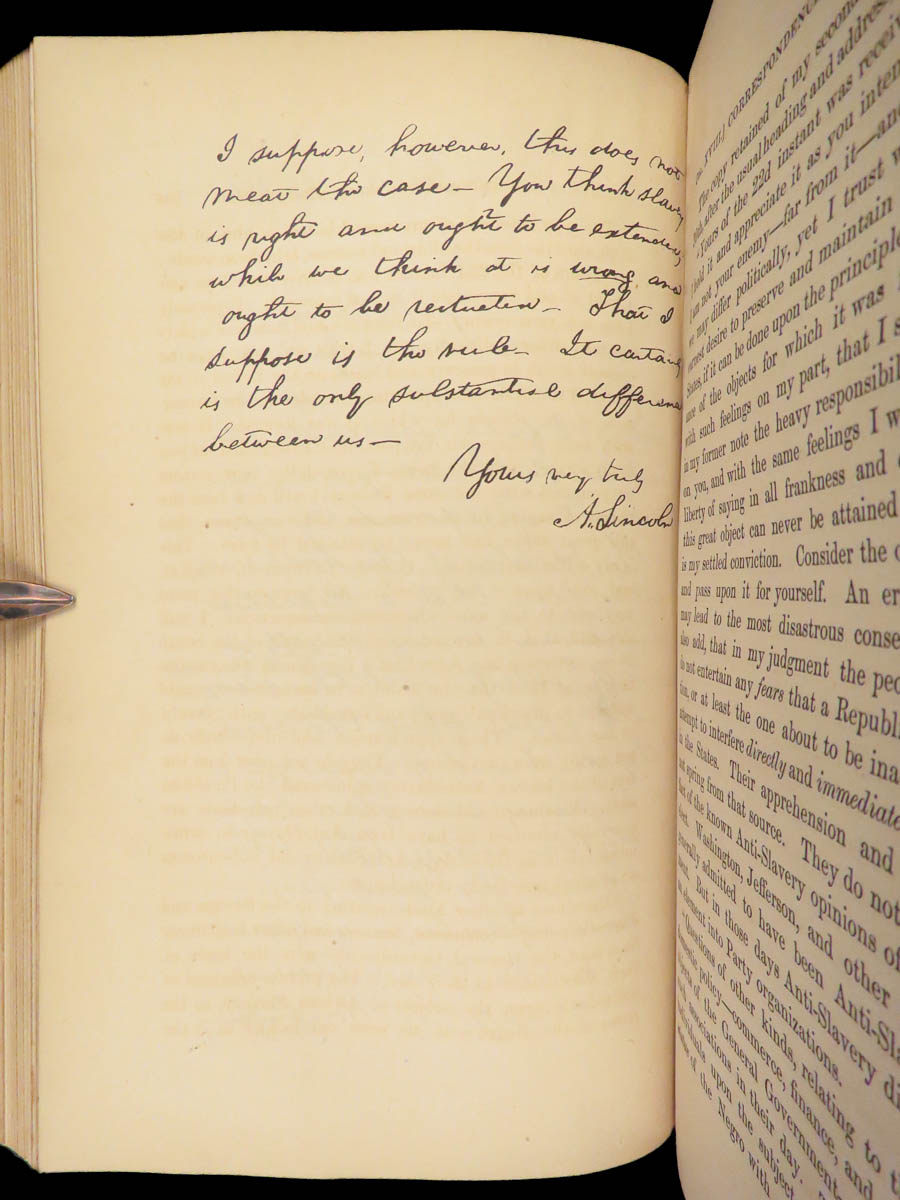 I suppose, however, this does not
meat the case— You think slavery
is right and ought to be extended,
while we think it is wrong and
ought to be restricted— That I
suppose is the rub— It certainly
is the only substantial difference
between us—
Yours very truly
A. Lincoln
XVIII.] CORRESPONDENC
The copy retained of my second
after the usual heading and addres
"Yours of the 22d instant was receiv
hold it and appreciate it as you inten
I am not your enemy—far from it—and
we may differ politically, yet I trust w
earnest desire to preserve and maintain
States, if it can be done upon the principle
ance of the objects for which it was
with such feelings on my part, that I s
in my former note the heavy responsibil
on you, and with the same feelings I w
liberty of saying in all frankness and
this great object can never be attained
is my settled conviction. Consider the
and pass upon it for yourself. An er
may lead to the most disastrous conse
also add, that in my judgment the peo
do not entertain any fears that a Republ
tion, or at least the one about to be ina
attempt to interfere directly and immediate
in the States. Their apprehension and
not spring from that source. They do not
out of the known Anti-Slavery opinions of
Washington, Jefferson, and other
generally admitted to have been Anti-Sla
But in those days Anti-Slavery di
an element into Party organizations.
"Questions of other kinds, relating to t
domestic policy—commerce, finance, and
objects of the General Government
such associations in their day.
individuals upon the subject
of the Negro with